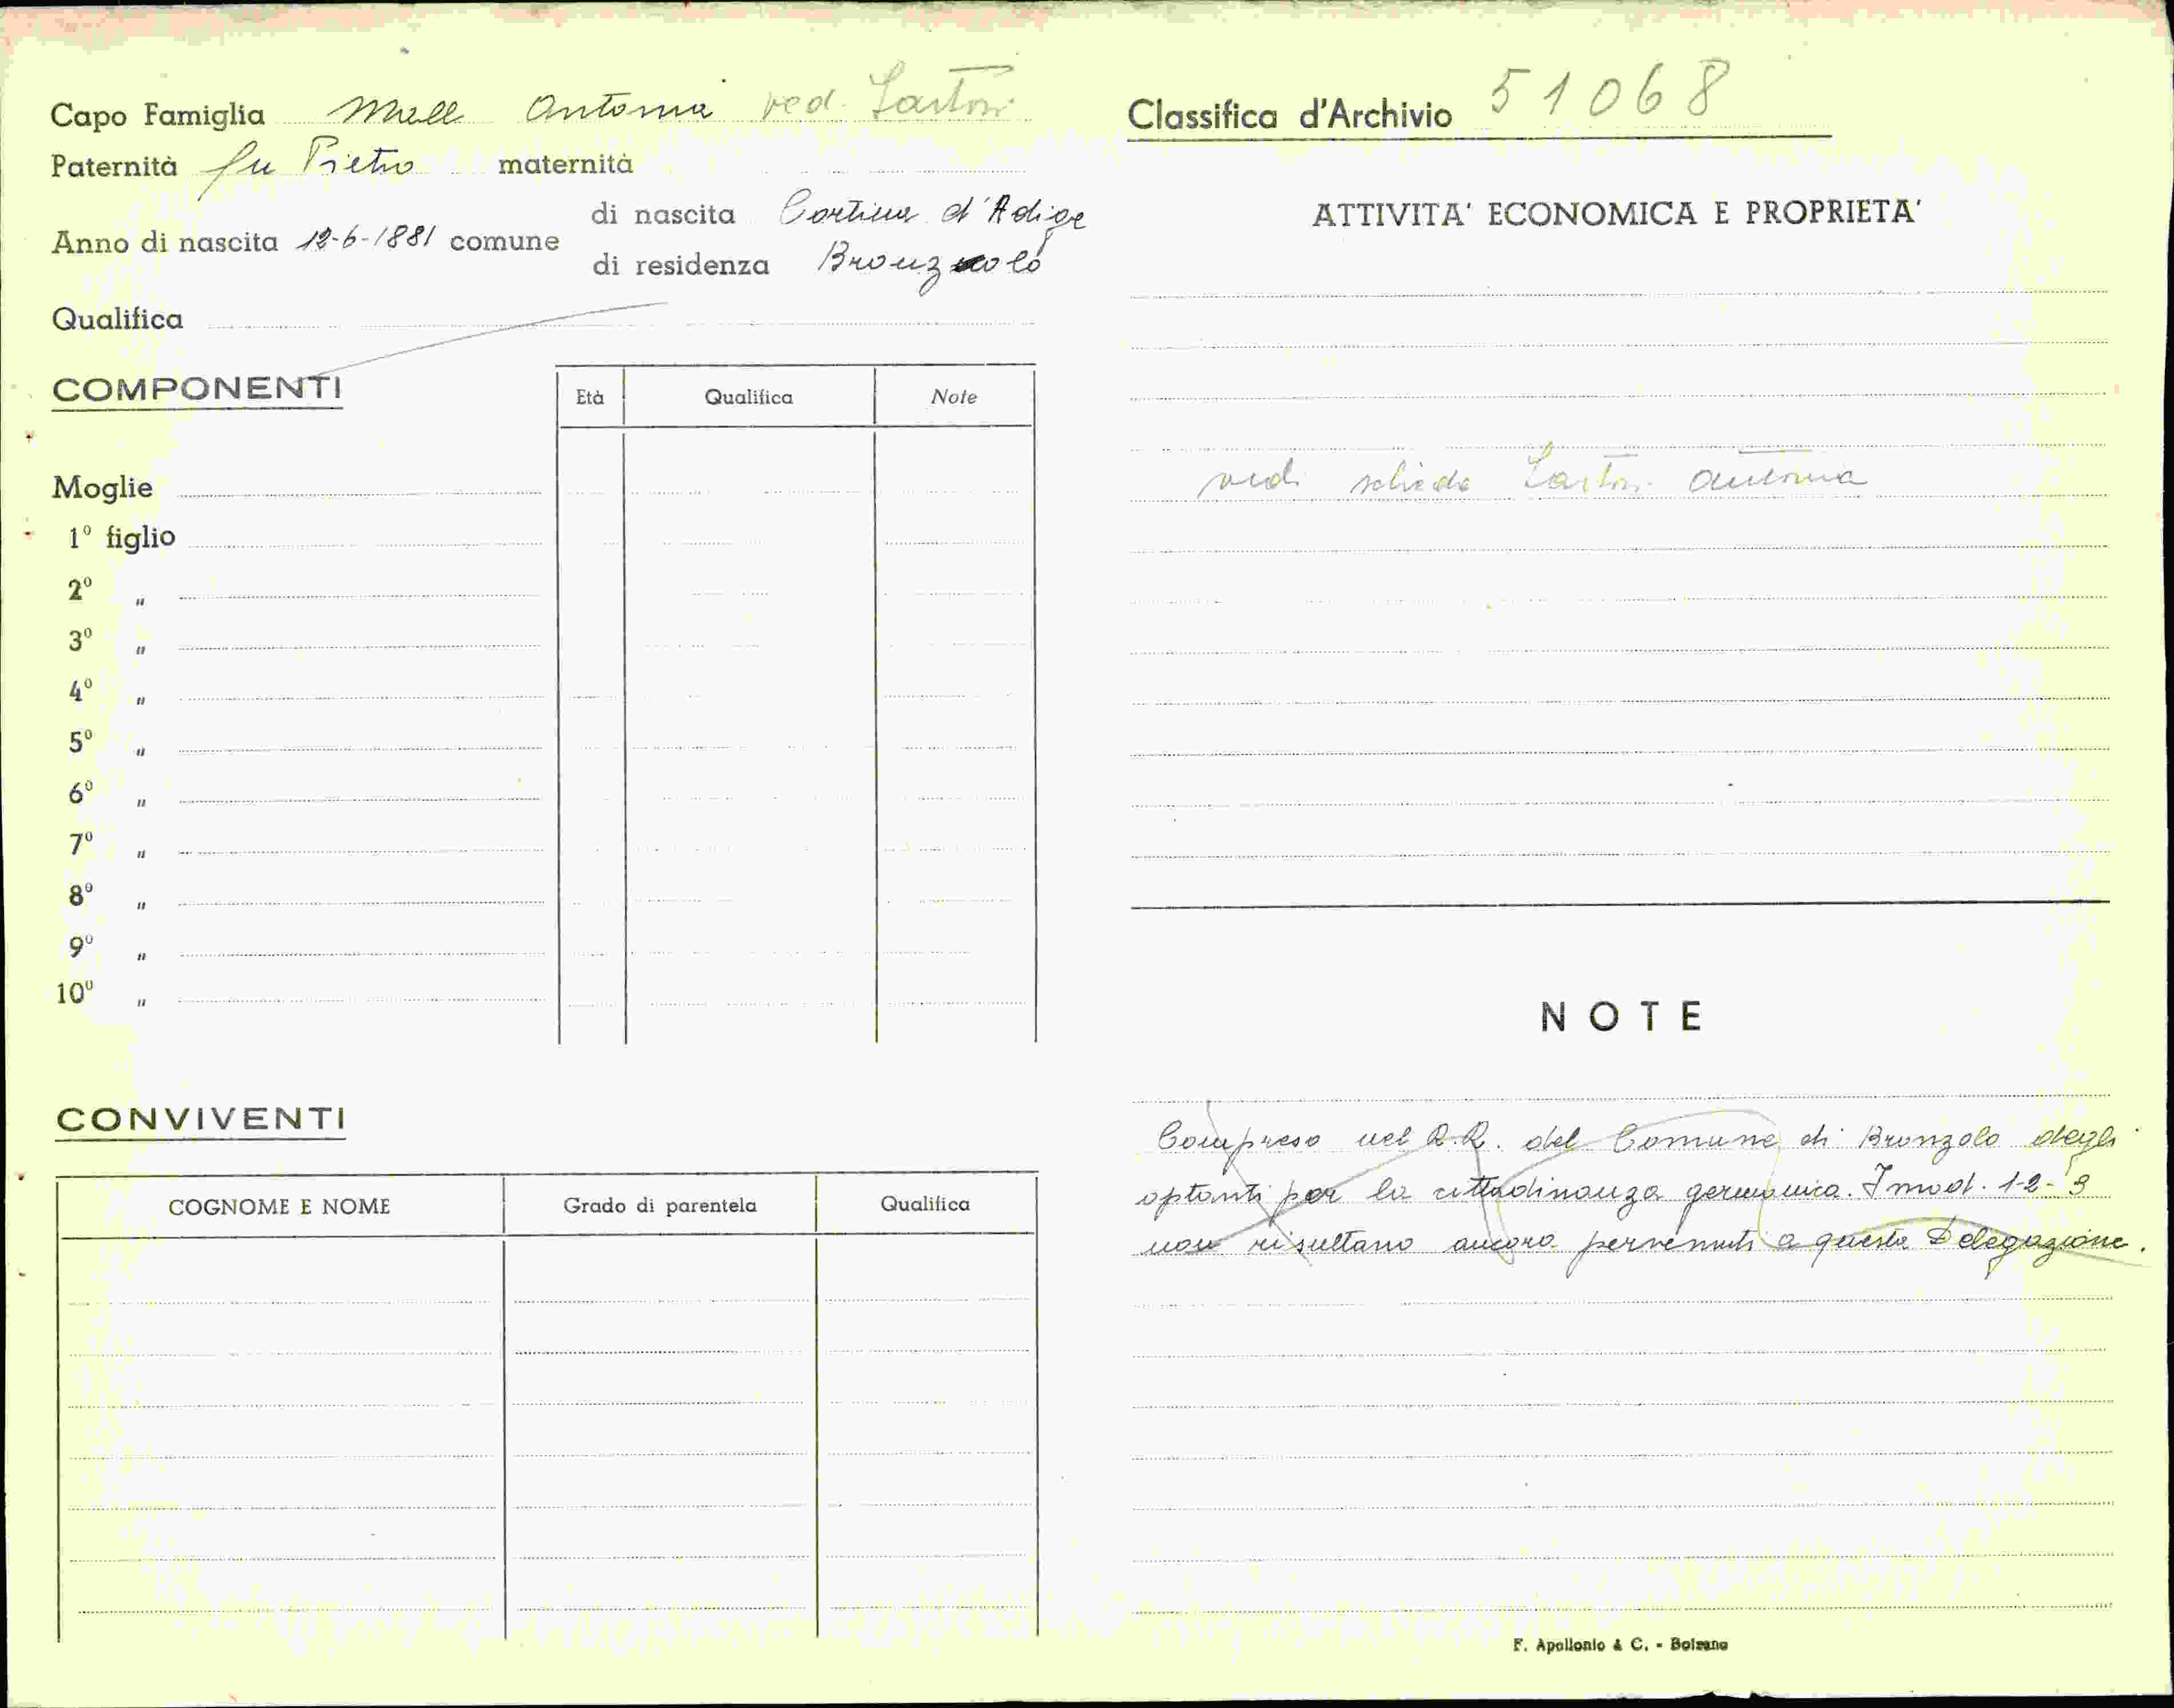 Capo Famiglia Mall Antonia ved. Sartori
Paternità fu Pietro maternità
Anno di nascita 12-6-1881 comune
di nascita Cortina d'Adige
di residenza Bronzolo
Qualifica
COMPONENTI
Età Qualifica Note
Moglie
1º figlio
2º "
3º "
4º "
5º "
6º "
7º "
8º "
9º "
10º "
CONVIVENTI
COGNOME E NOME Grado di parentela Qualifica
Classifica d'Archivio 51068
ATTIVITA' ECONOMICA E PROPRIETA'
vedi scheda Sartori Antonia
NOTE
Compreso nel R.R. del Comune di Bronzolo degli
optanti per la cittadinanza germanica. I mod. 1-2-3
non risultano ancora pervenuti a questa Delegazione.
F. Apollonio & C. - Bolzano